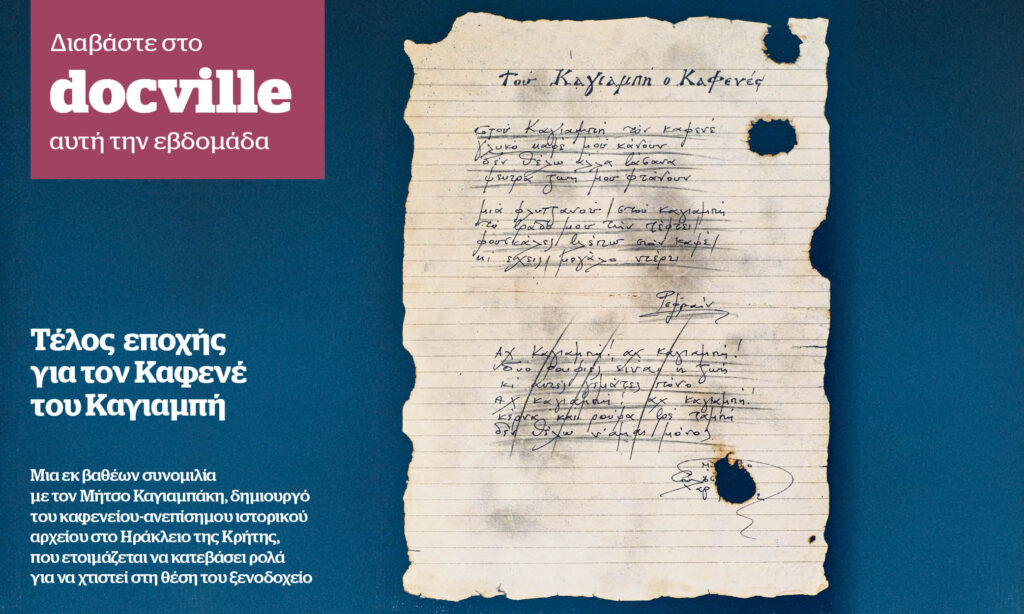 Διαβάστε στο
docville
αυτή την εβδομάδα
Τέλος εποχής
για τον Καφενέ
του Καγιαμπή
Μια εκ βαθέων συνομιλία
με τον Μήτσο Καγιαμπάκη, δημιουργό
του καφενείου-ανεπίσημου ιστορικού
αρχείου στο Ηράκλειο της Κρήτης,
που ετοιμάζεται να κατεβάσει ρολά
για να χτιστεί στη θέση του ξενοδοχείο
Τού Καγιαμπή ο Καφενές
στού Καγιαμπή τόν καφενέ
γλυκό καφέ μού κάνουν
δέν θέλω άλλα βάσανα
ψεύτρα ζωή μου φτάνουν
μιά φλυτζανού / στού καγιαμπή
τό βράδυ μου τήν πέφτει /
φουσκάλες / βλέπω στόν καφέ /
κι έχεις / μεγάλο ντέρτι
Ρεφραίν
Αχ καγιαμπή! αχ καγιαμπή!
δυό ρουφιές είναι η ζωή
κι αυτές γεμάτες πόνο
Αχ καγιαμπή! αχ καγιαμπή!
κέρνα και ρούφα βρέ ταμπή
δέν θέλω νάμαι μόνος